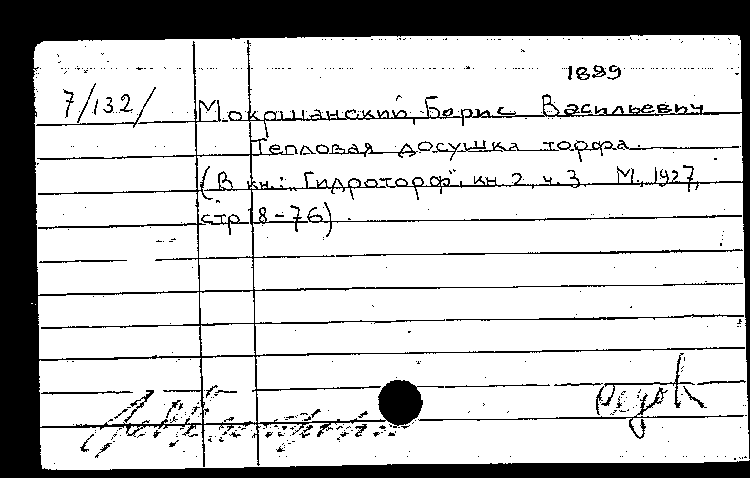 1899
7/132/ Мокршанский, Борис Васильевич
Тепловая досушка торфа.
(В кн.: „Гидроторф", кн. 2, ч. 3 М., 1927,
стр 8-76).